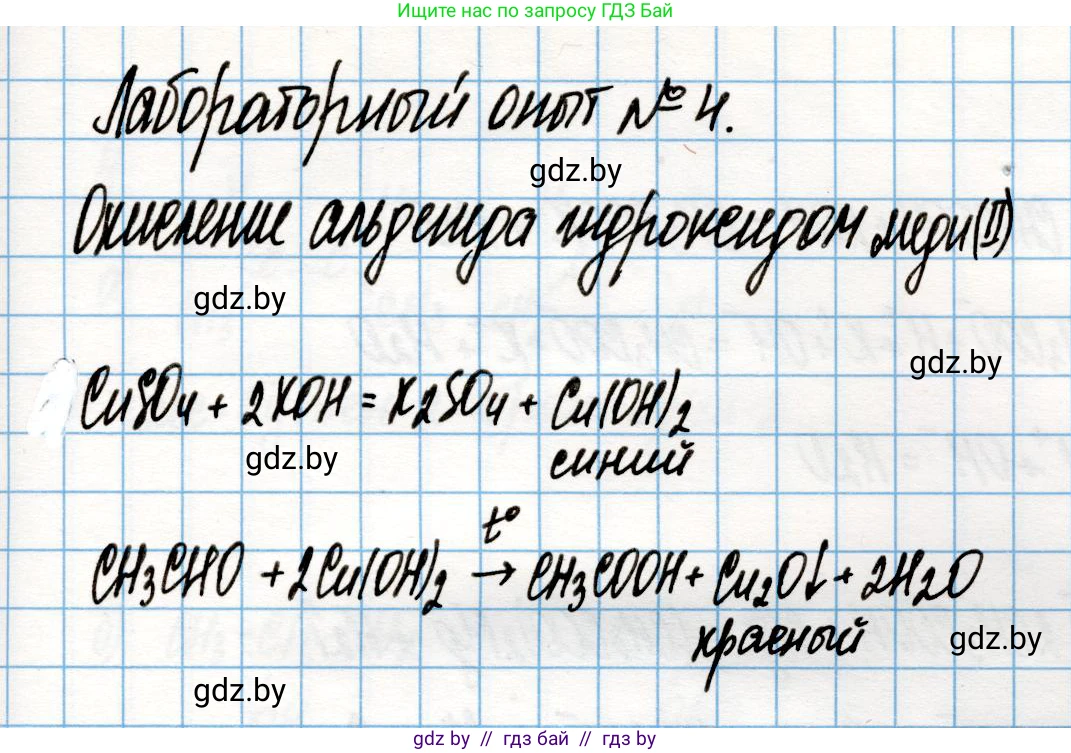 Ищите нас по запросу ГДЗ Бай
Лабораторный опыт № 4.
gdz.by
Окисление альдегида гидроксидом меди (II)
gdz.by
gdz.by
CuSO4 + 2KOH = K2SO4 + Cu(OH)2
gdz.by
синий
t°
CH3CHO + 2Cu(OH)2 → CH3COOH + Cu2O↓ + 2H2O
красный
gdz.by
gdz.by
gdz.by // гдз бай // gdz.by